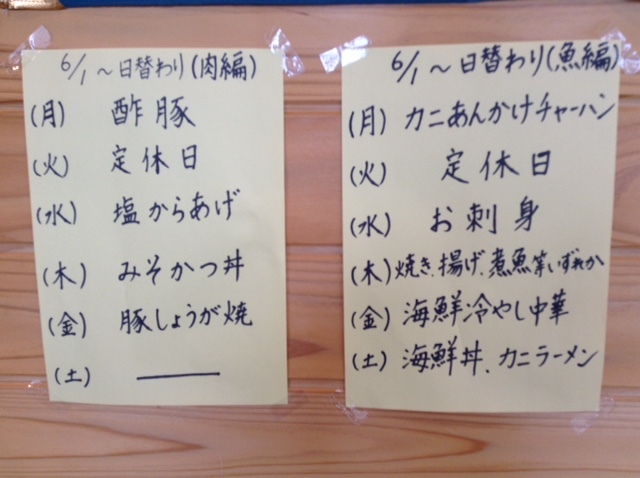 6/1~日替わり(肉編)
(月) 酢豚
(火) 定休日
(水) 塩からあげ
(木) みそかつ丼
(金) 豚しょうが焼
(土) ―――
6/1~日替わり(魚編)
(月) カニあんかけチャーハン
(火) 定休日
(水) お刺身
(木) 焼き、揚げ、煮魚等いずれか
(金) 海鮮冷やし中華
(土) 海鮮丼、カニラーメン